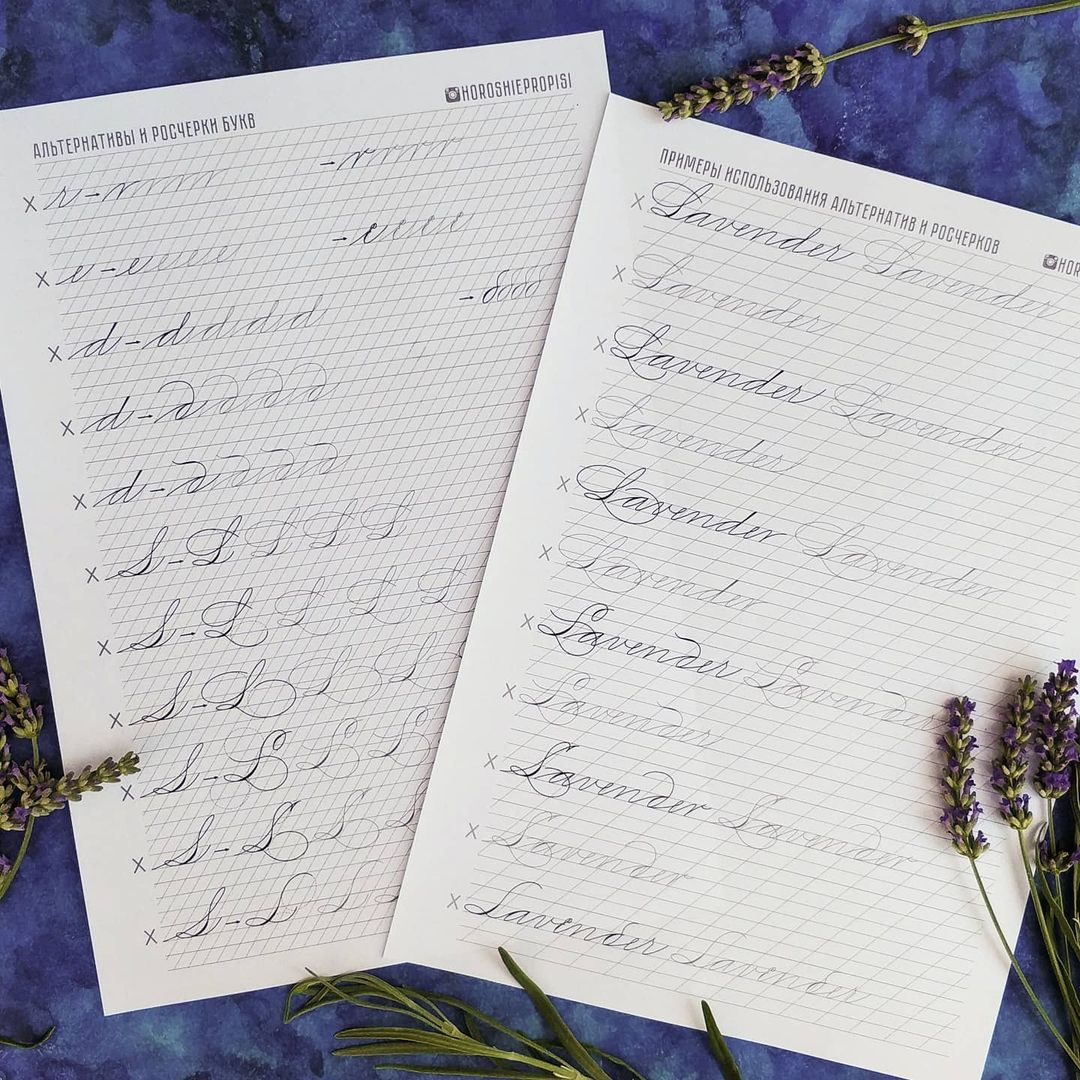 АЛЬТЕРНАТИВЫ И РОСЧЕРКИ БУКВ
HOROSHIEPROPISI
x r - r r r r r - r r r r r
x e - e e e e e - e e e e e
x d - d d d d d - d d d d
x d - d d d d d
x d - d d d d d
x L - L L L L L
x L - L L L L L
x L - L L L L
x L - L L L
x L - L L L
x L - L L L
ПРИМЕРЫ ИСПОЛЬЗОВАНИЯ АЛЬТЕРНАТИВ И РОСЧЕРКОВ
x Lavender Lavender
x Lavender
x Lavender Lavender
x Lavender
x Lavender Lavender
x Lavender
x Lavender Lavender
x Lavender
x Lavender Lavender
x Lavender
x Lavender Lavender